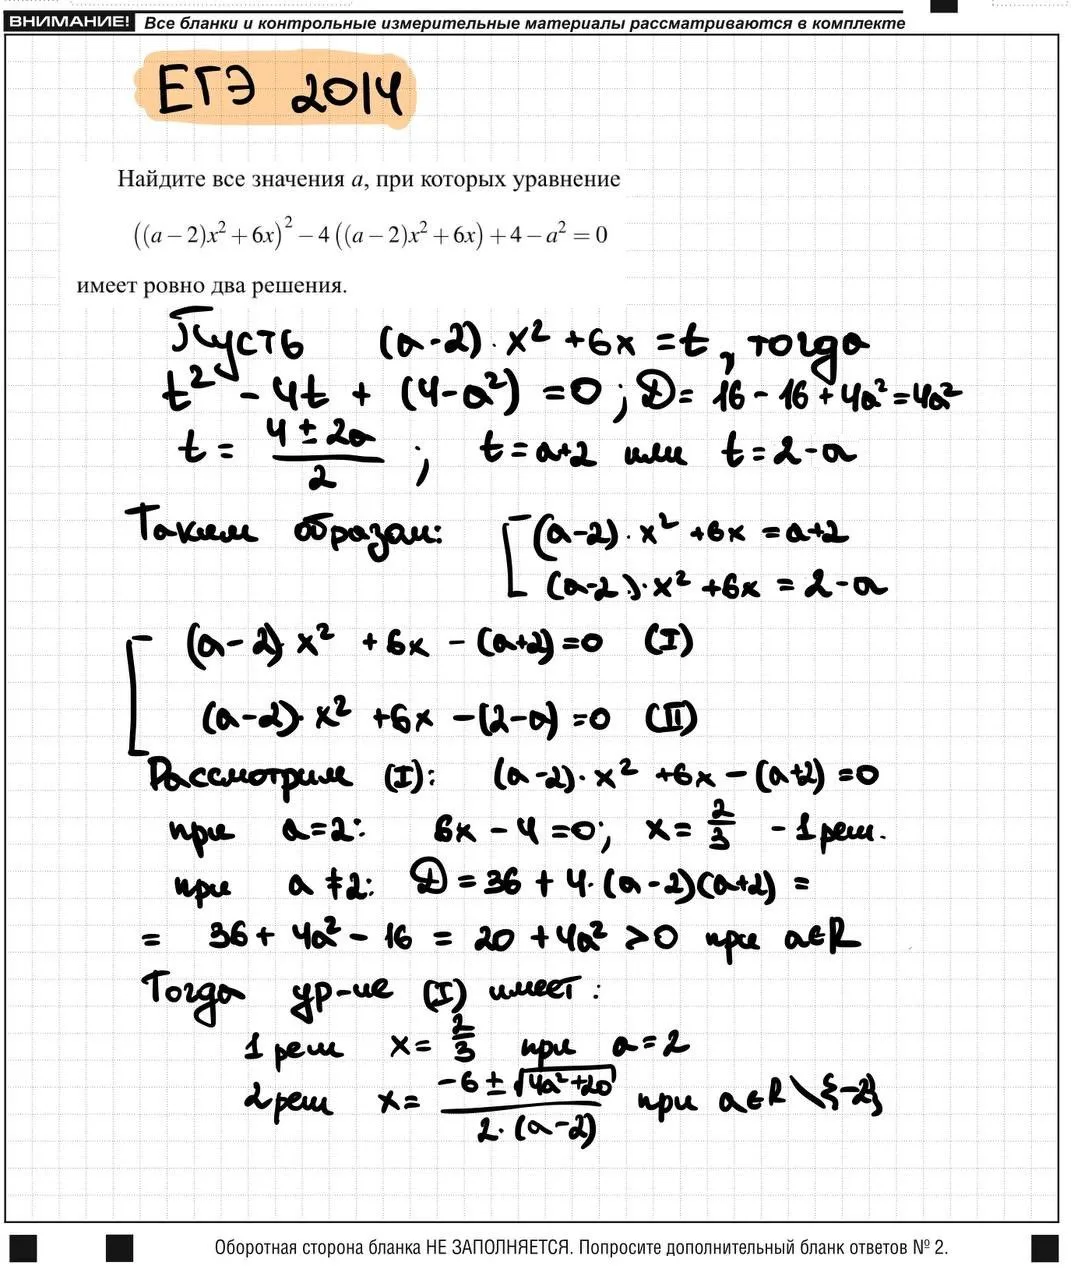 ВНИМАНИЕ! Все бланки и контрольные измерительные материалы рассматриваются в комплекте
ЕГЭ 2014
Найдите все значения a, при которых уравнение
((a − 2)x² + 6x)² − 4((a − 2)x² + 6x) + 4 − a² = 0
имеет ровно два решения.
Пусть (a-2)·x² +6x = t, тогда
t² - 4t + (4-a²) = 0; D = 16 - 16 + 4a² = 4a²
t = (4 ± 2a)/2; t = a+2 или t = 2-a
Таким образом: [ (a-2)·x² +6x = a+2
(a-2)·x² +6x = 2-a
[ (a-2)·x² +6x -(a+2) = 0 (I)
(a-2)·x² +6x -(2-a) = 0 (II)
Рассмотрим (I): (a-2)·x² +6x -(a+2) = 0
при a=2: 6x - 4 = 0; x = 2/3 - 1 реш.
при a ≠ 2: D = 36 + 4·(a-2)(a+2) =
= 36 + 4a² - 16 = 20 + 4a² > 0 при a∈R
Тогда ур-ие (I) имеет:
1 реш x = 2/3 при a = 2
2 реш x = (-6 ± √(4a²+20))/(2·(a-2)) при a∈R \ {-2}
Оборотная сторона бланка НЕ ЗАПОЛНЯЕТСЯ. Попросите дополнительный бланк ответов № 2.